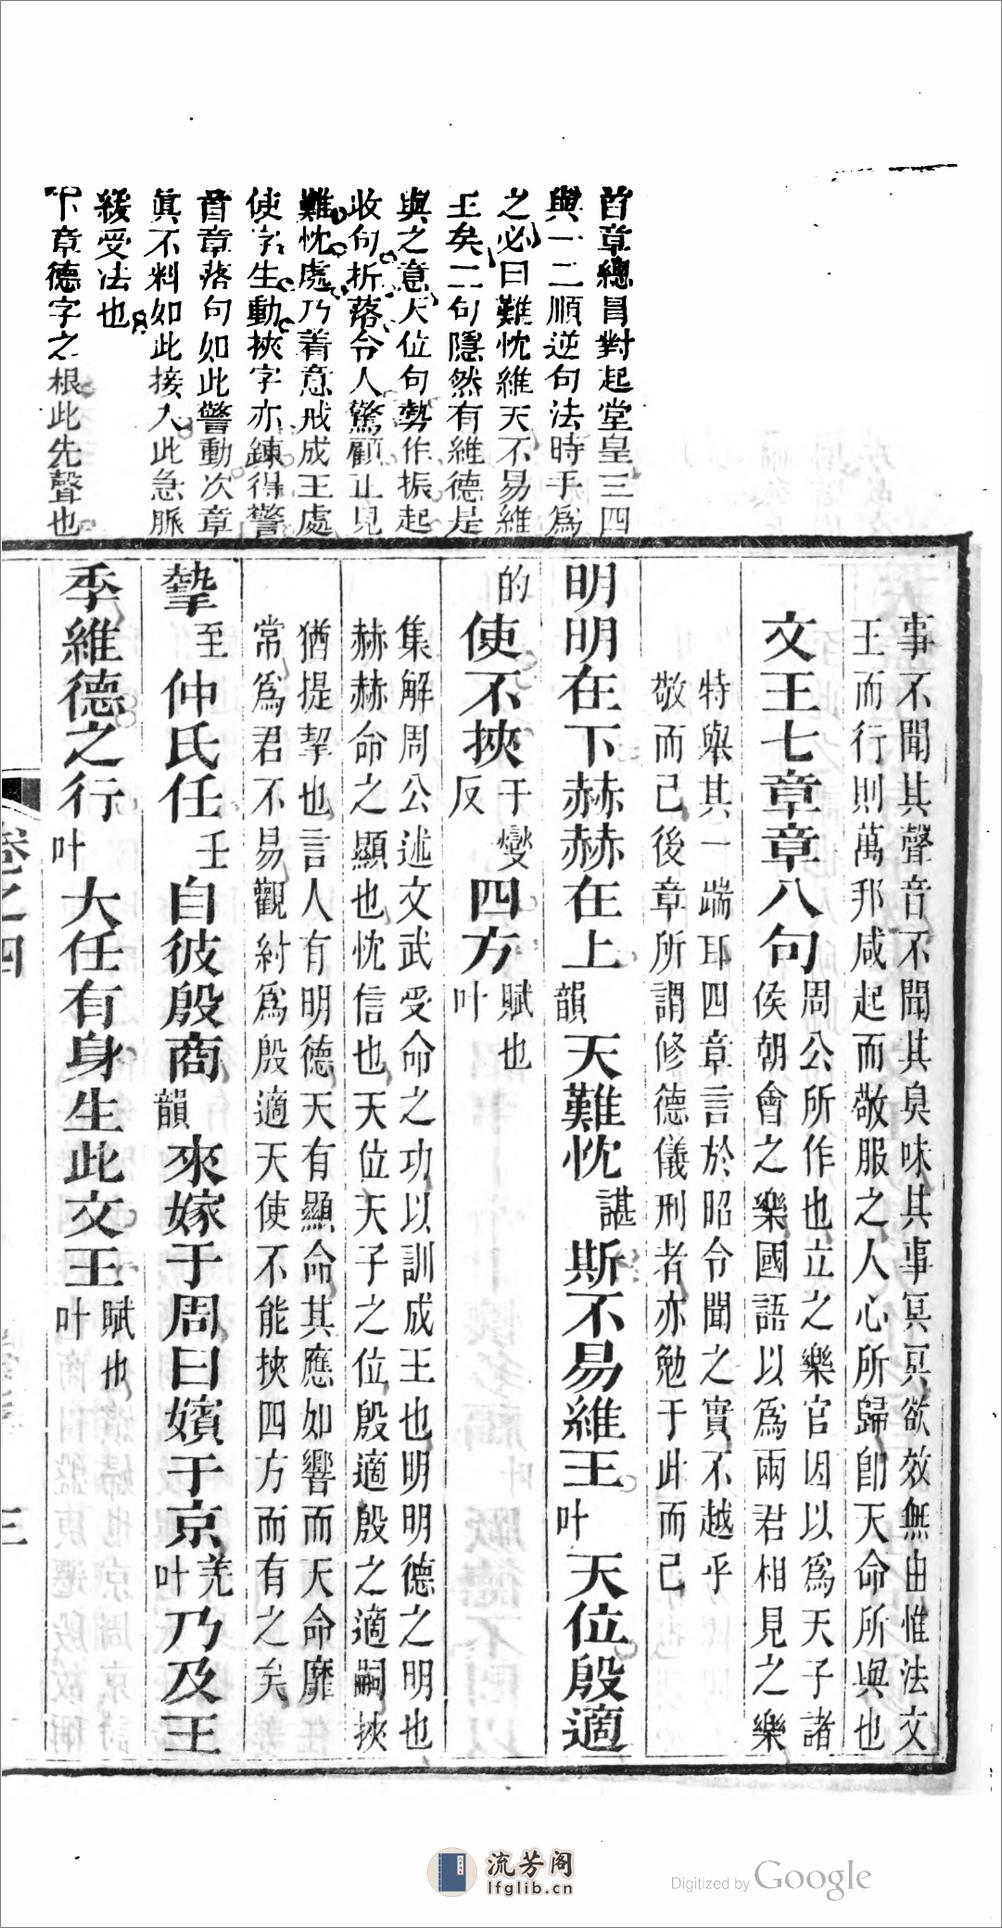 首章總冒對起堂皇三四
與一二順逆句法時手為
之必曰難忱維天不易維
王矣二句隱然有維德是
與之意天位句勢作振起
收句折落令人驚顧止見
難忱處乃著意戒成王處
使字生動挾字亦鍊得警
首章落句如此警動次章
眞不料如此接入此急脈
緩受法也
下章德字之根此先聲也
事不聞其聲音不聞其臭味其事冥冥欲效無由惟法文
王而行則萬邦咸起而敬服之人心所歸卽天命所與也
文王七章章八句周公所作也立之樂官因以爲天子諸
侯朝會之樂國語以爲兩君相見之樂
特與其一端耳四章言於昭令聞之實不越乎
敬而已後章所謂修德儀刑者亦勉于此而已
明明在下赫赫在上韻天難忱諶斯不易維王叶天位殷適
的使不挾于燮反四方叶賦也
集解周公述文武受命之功以訓成王也明明德之明也
赫赫命之顯也忱信也天位天子之位殷適殷之適嗣挾
猶提挈也言人有明德天有顯命其應如響而天命靡
常爲君不易觀紂爲殷適天使不能挾四方而有之矣
摯至仲氏任壬自彼殷商韻來嫁于周曰嬪于京叶羌乃及王
季維德之行叶大任有身生此文王叶賦也
卷之四
三
流芳阁
lfglib.cn
Digitized by Google